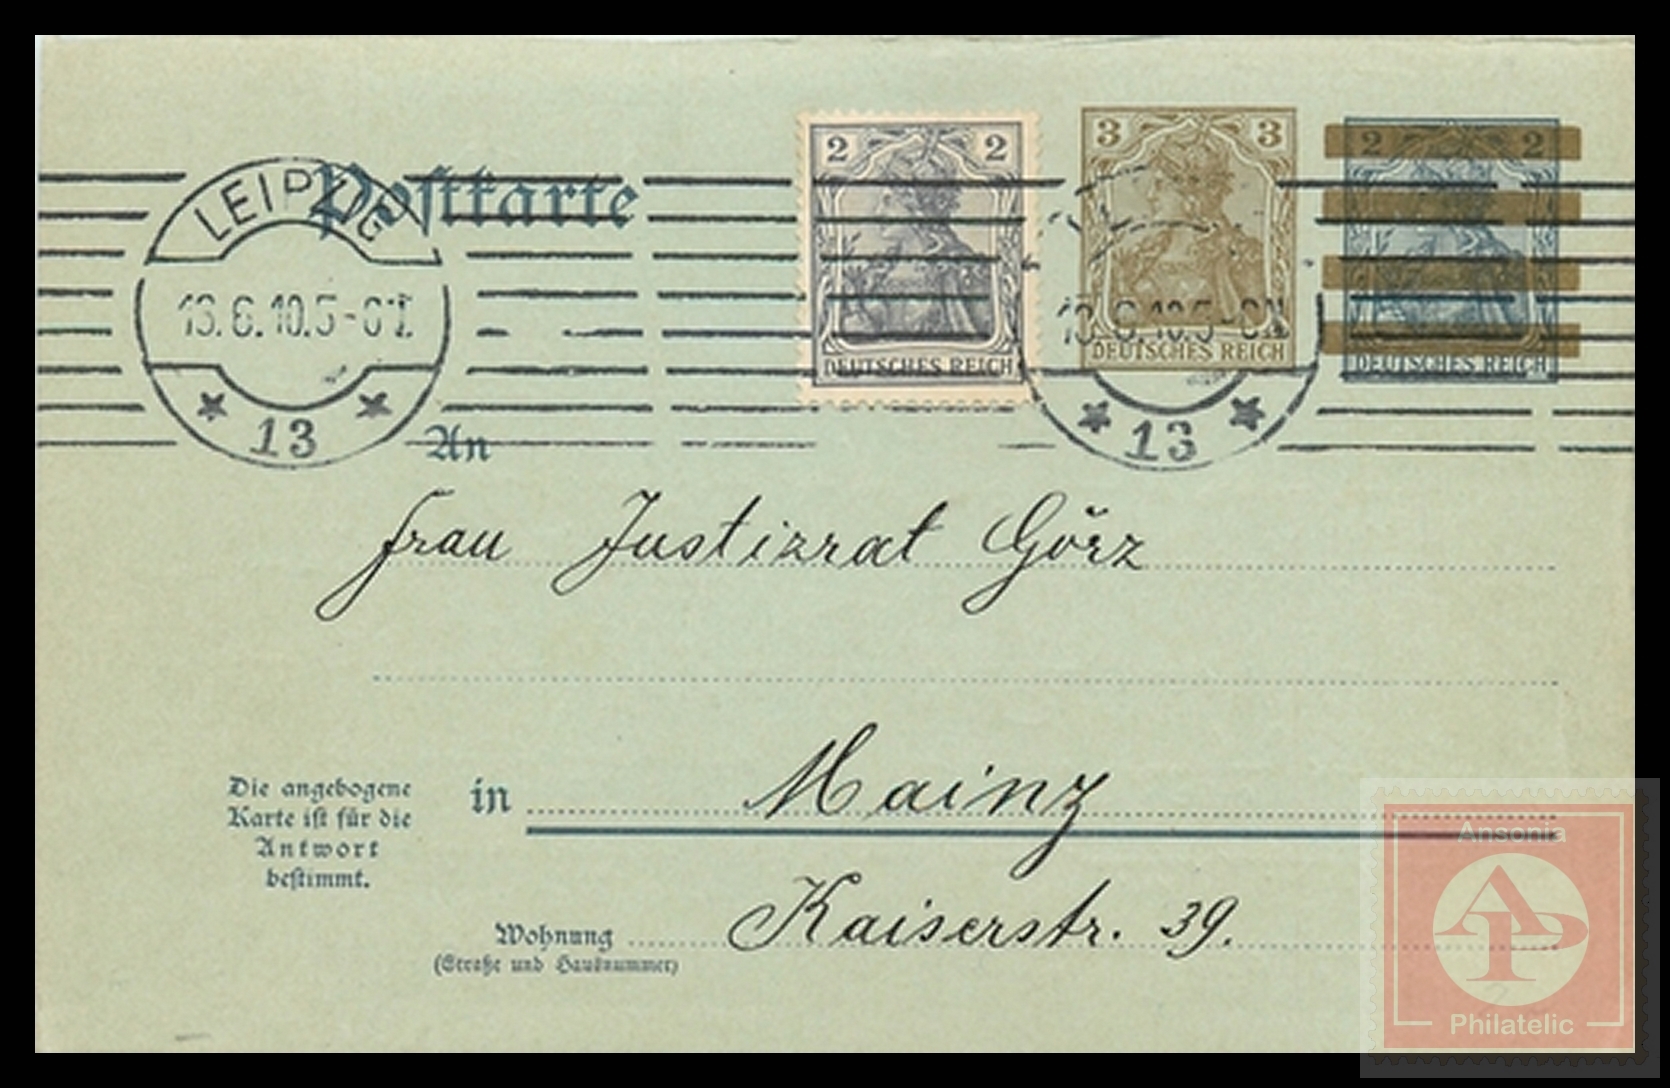 2 2
3 3
2 2
Postkarte
LEIPZIG
13.6.10.5-6N.
13.6.10.5-6N.
DEUTSCHES REICH
DEUTSCHES REICH
DEUTSCHES REICH
13
13
An
Frau Justizrat Görz
in Mainz
Die angebogene
Karte ist für die
Antwort
bestimmt.
Kaiserstr. 39.
Wohnung
(Straße und Hausnummer)
Ansonia
AP
Philatelic